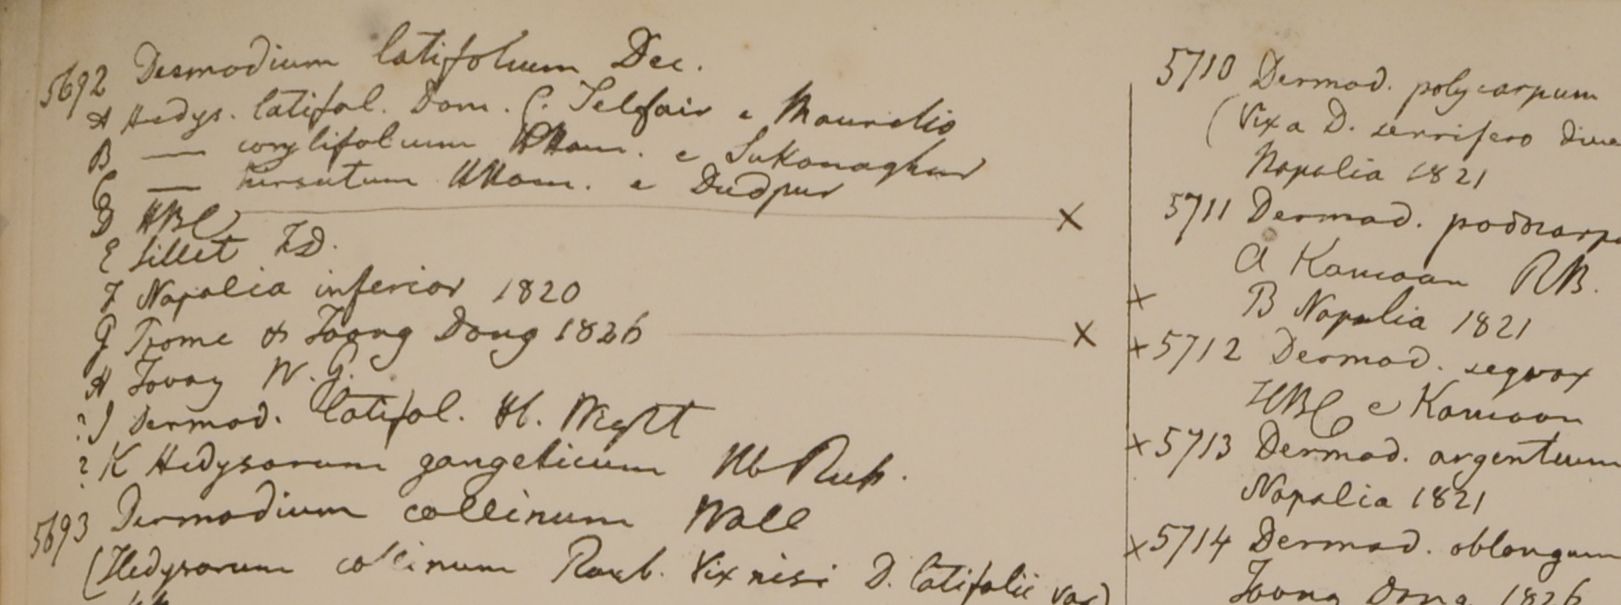 5692 Desmodium latifolium Dec.
A Hedys. latifol. Dom. C. Telfair e Mauritio
B — corylifolium HHam. e Sukanaghur
C — hirsutum HHam. e Dudpur
D HBC X
E Sillet FD.
F Napalia inferior 1820
G Prome & Toong Dong 1826 X
H Tavoy W.G.
? I Desmod. latifol. H. Wight
? K Hedysarum gangeticum Hb Rusp.
5693 Desmodium collinum Wall
(Hedysarum collinum Roxb. Vix nisi D. latifolii var)
5710 Desmod. polycarpum
(Vix a D. serrifero
Napalia 1821
5711 Desmod. podocarp
A Kamaon RB.
x B Napalia 1821
x 5712 Desmod. sequax
HBC e Kamaon
x 5713 Desmod. argenteum
Napalia 1821
x 5714 Desmod. oblongum
Toong Dong 1826